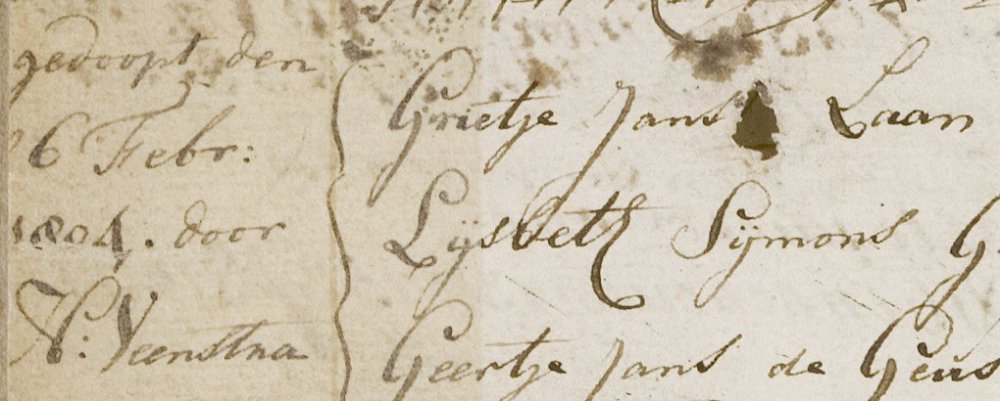 gedoopt den
6 Febr:
1804. door
H: Veenstra
Grietje Jans Laan
Lijsbeth Sijmons G
Geertje Jans de Geus